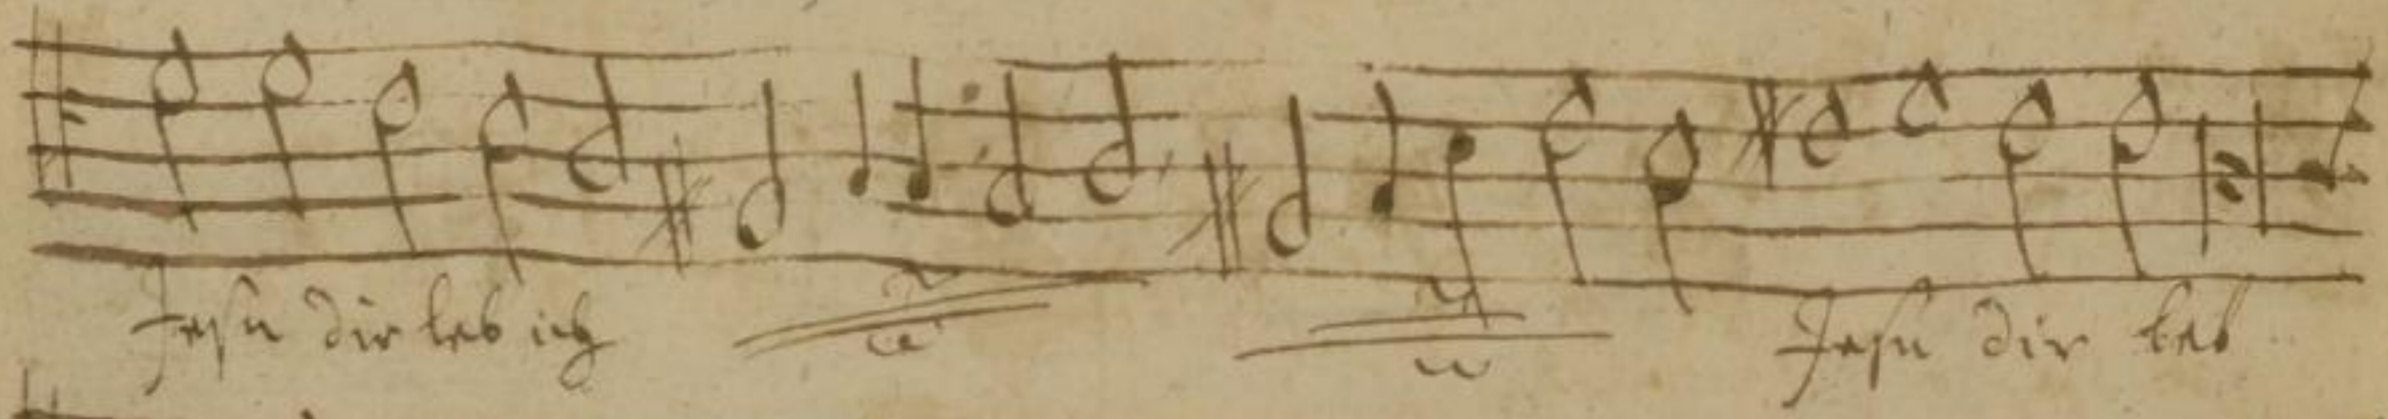 Jesu dir leb ich Jesu dir leb